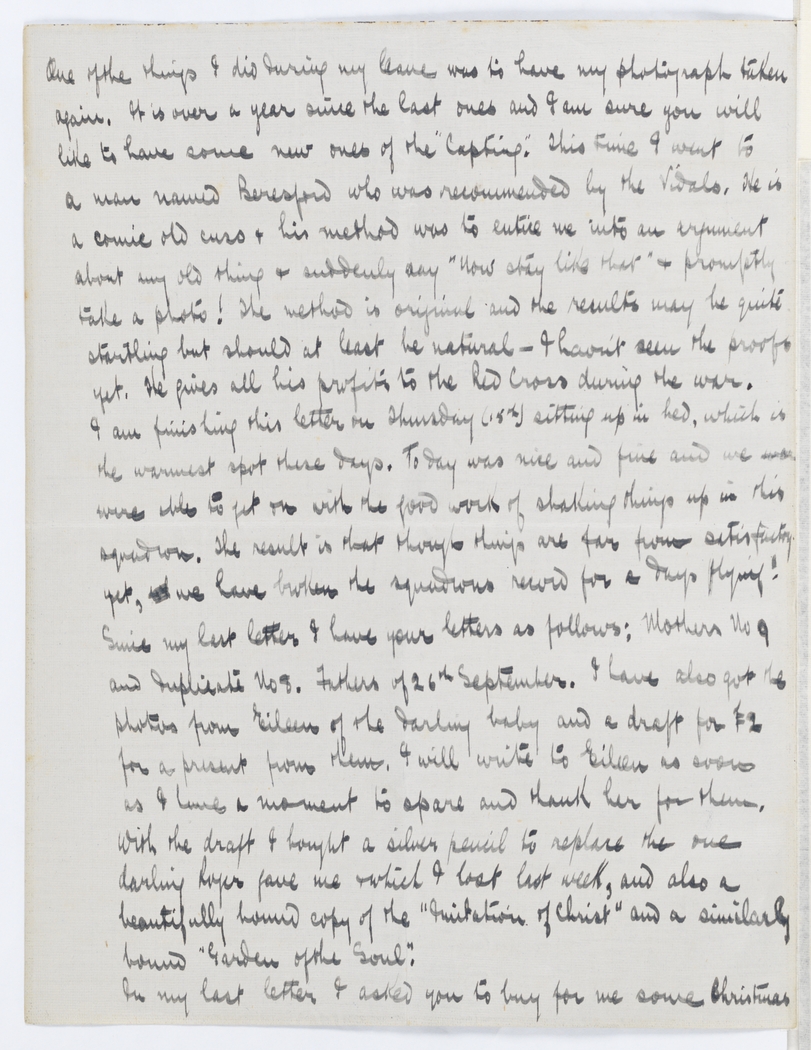 One of the things I did during my leave was to have my photograph taken
again. It is over a year since the last ones and I am sure you will
like to have some new ones of the "Capting". This time I went to
a man named Beresford who was recommended by the Vidals. He is
a comic old cuss & his method was to entice me into an argument
about any old thing & suddenly say "Now stay like that" & promptly
take a photo! The method is original and the results may be quite
startling but should at least be natural – I havn't seen the proofs
yet. He gives all his profits to the Red Cross during the war.
I am finishing this letter on Thursday (18th) sitting up in bed, which is
the warmest spot these days. Today was nice and fine and we
were able to get on with the good work of shaking things up in this
squadron. The result is that though things are far from satisfactory
yet, we have broken the squadrons record for a days flying".
Since my last letter I have your letters as follows; Mothers No 9
and duplicate No 8. Fathers of 26th September. I have also got the
photos from Eileen of the darling baby and a draft for £2
for a present from them. I will write to Eileen as soon
as I have a moment to spare and thank her for them.
With the draft I bought a silver pencil to replace the one
darling Roger gave me & which I lost last week, and also a
beautifully bound copy of the "Imitation of Christ" and a similarly
bound "Garden of the Soul".
In my last letter I asked you to buy for me some Christmas